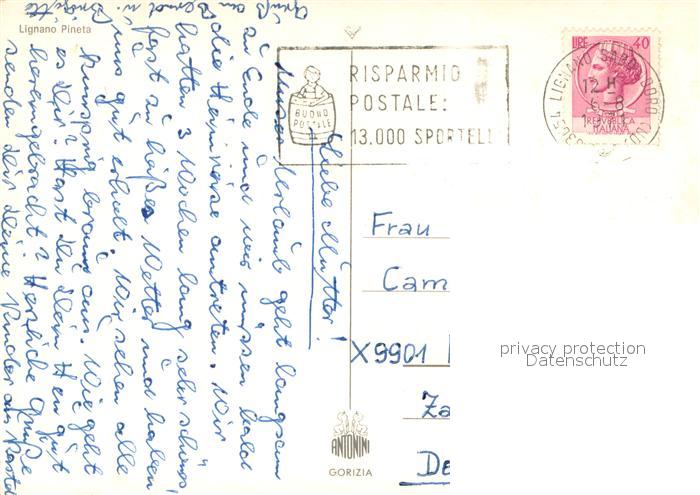 Lignano Pineta
RISPARMIO
POSTALE:
13.000 SPORTELLI
BUONO
POSTALE
LIRE 40
REPVBBLICA
ITALIANA
LIGNANO SABBIADORO (UD)
12 H
6-8
Liebe Mutter!
Unser Urlaub geht langsam
zu Ende und wir müssen bald
die Heimreise antreten. Wir
hatten 3 Wochen lang sehr schönes,
fast zu heißes Wetter und haben
uns gut erholt. Wir sehen alle
knusprig braun aus. Wie geht
es Dir? Hast Du Dein Heu gut
hereingebracht? Herzliche Grüße
senden Dir Deine Kinder aus
Gruß an Bernd u. Brigitte
Frau
Cam
X9901
Za
De
ANTONINI
GORIZIA
privacy protection
Datenschutz